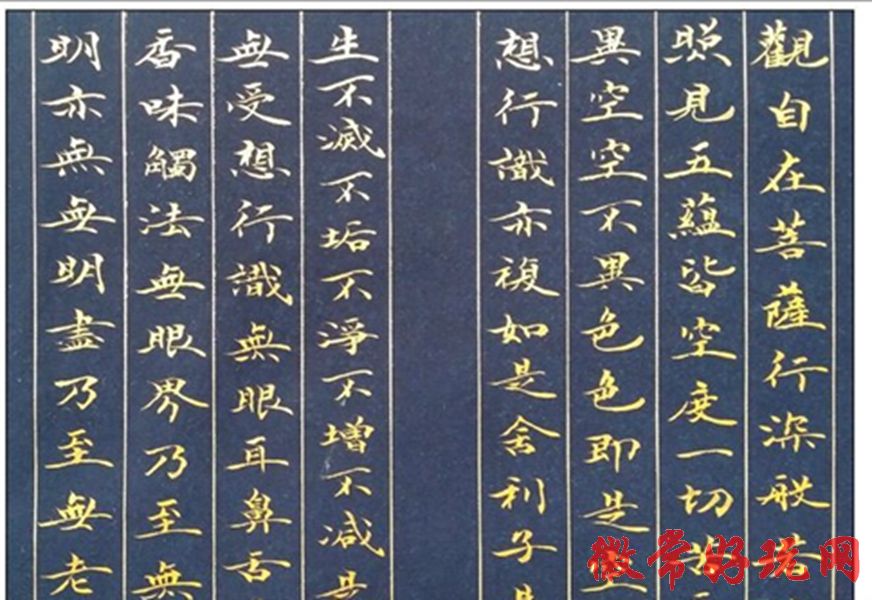 觀自在菩薩行深般若
照見五蘊皆空度一切苦
異空空不異色色即是空
想行識亦複如是舍利子是
生不滅不垢不淨不增不減是
無受想行識無眼耳鼻舌
香味觸法無眼界乃至無
明亦無無明盡乃至無老
徽常好玩网